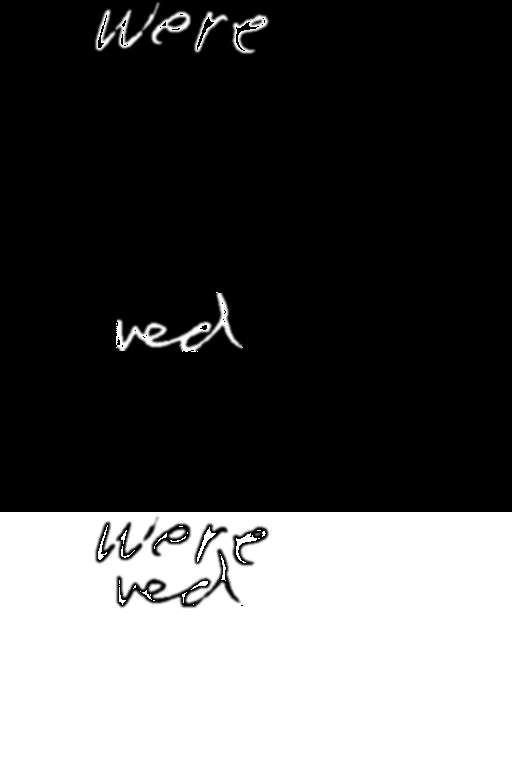 were
red
were
red